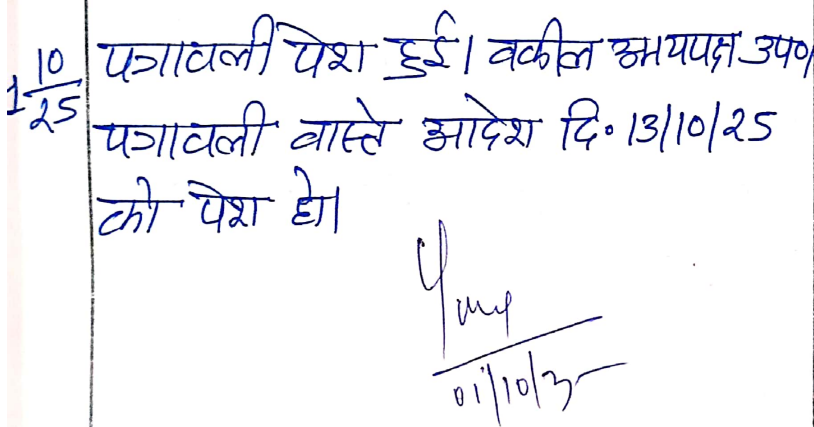 1 10/25
पत्रावली पेश हुई। वकील उभयपक्ष उप०।
पत्रावली वास्ते आदेश दि॰ 13/10/25
को पेश हो।
01/10/25